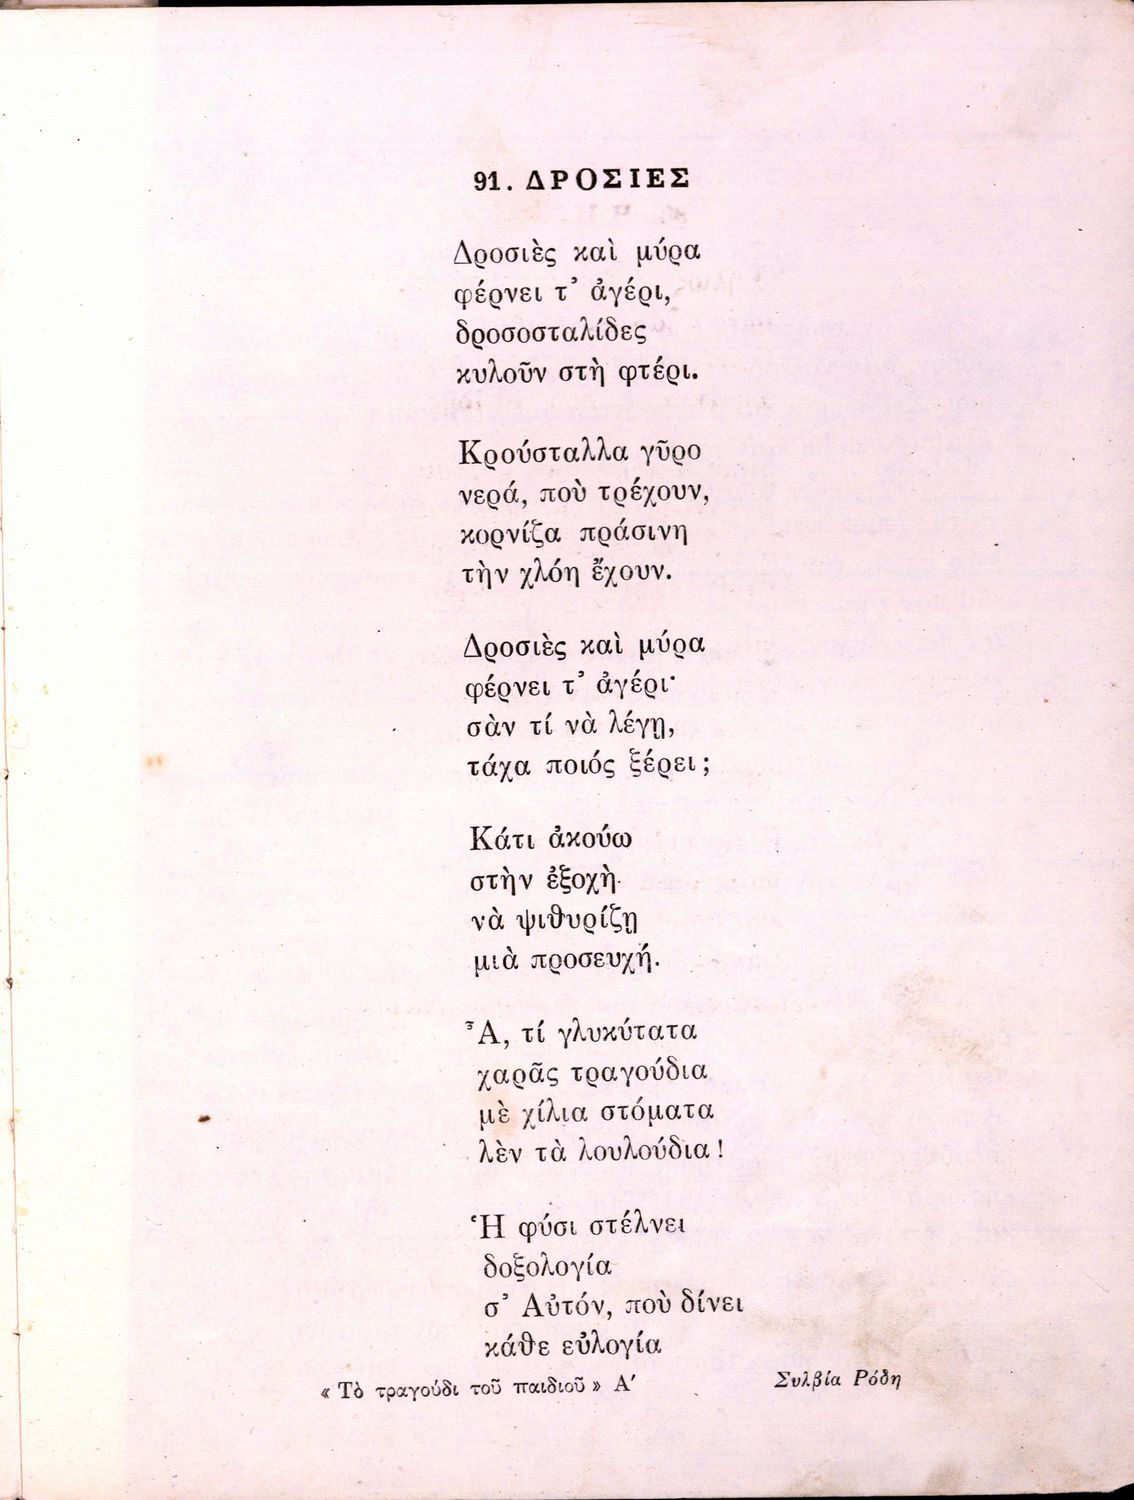 91. ΔΡΟΣΙΕΣ
Δροσιὲς καὶ μύρα
φέρνει τ᾿ ἀγέρι,
δροσοσταλίδες
κυλοῦν στὴ φτέρι.
Κρούσταλλα γῦρο
νερά, ποὺ τρέχουν,
κορνίζα πράσινη
τὴν χλόη ἔχουν.
Δροσιὲς καὶ μύρα
φέρνει τ᾿ ἀγέρι·
σὰν τί νὰ λέγῃ,
τάχα ποιός ξέρει;
Κάτι ἀκούω
στὴν ἐξοχὴ
νὰ ψιθυρίζῃ
μιὰ προσευχή.
Ἆ, τί γλυκύτατα
χαρᾶς τραγούδια
μὲ χίλια στόματα
λὲν τὰ λουλούδια!
Ἡ φύσι στέλνει
δοξολογία
σ᾿ Αὐτόν, ποὺ δίνει
κάθε εὐλογία
« Τὸ τραγούδι τοῦ παιδιοῦ » Α′ Συλβία Ρόδη